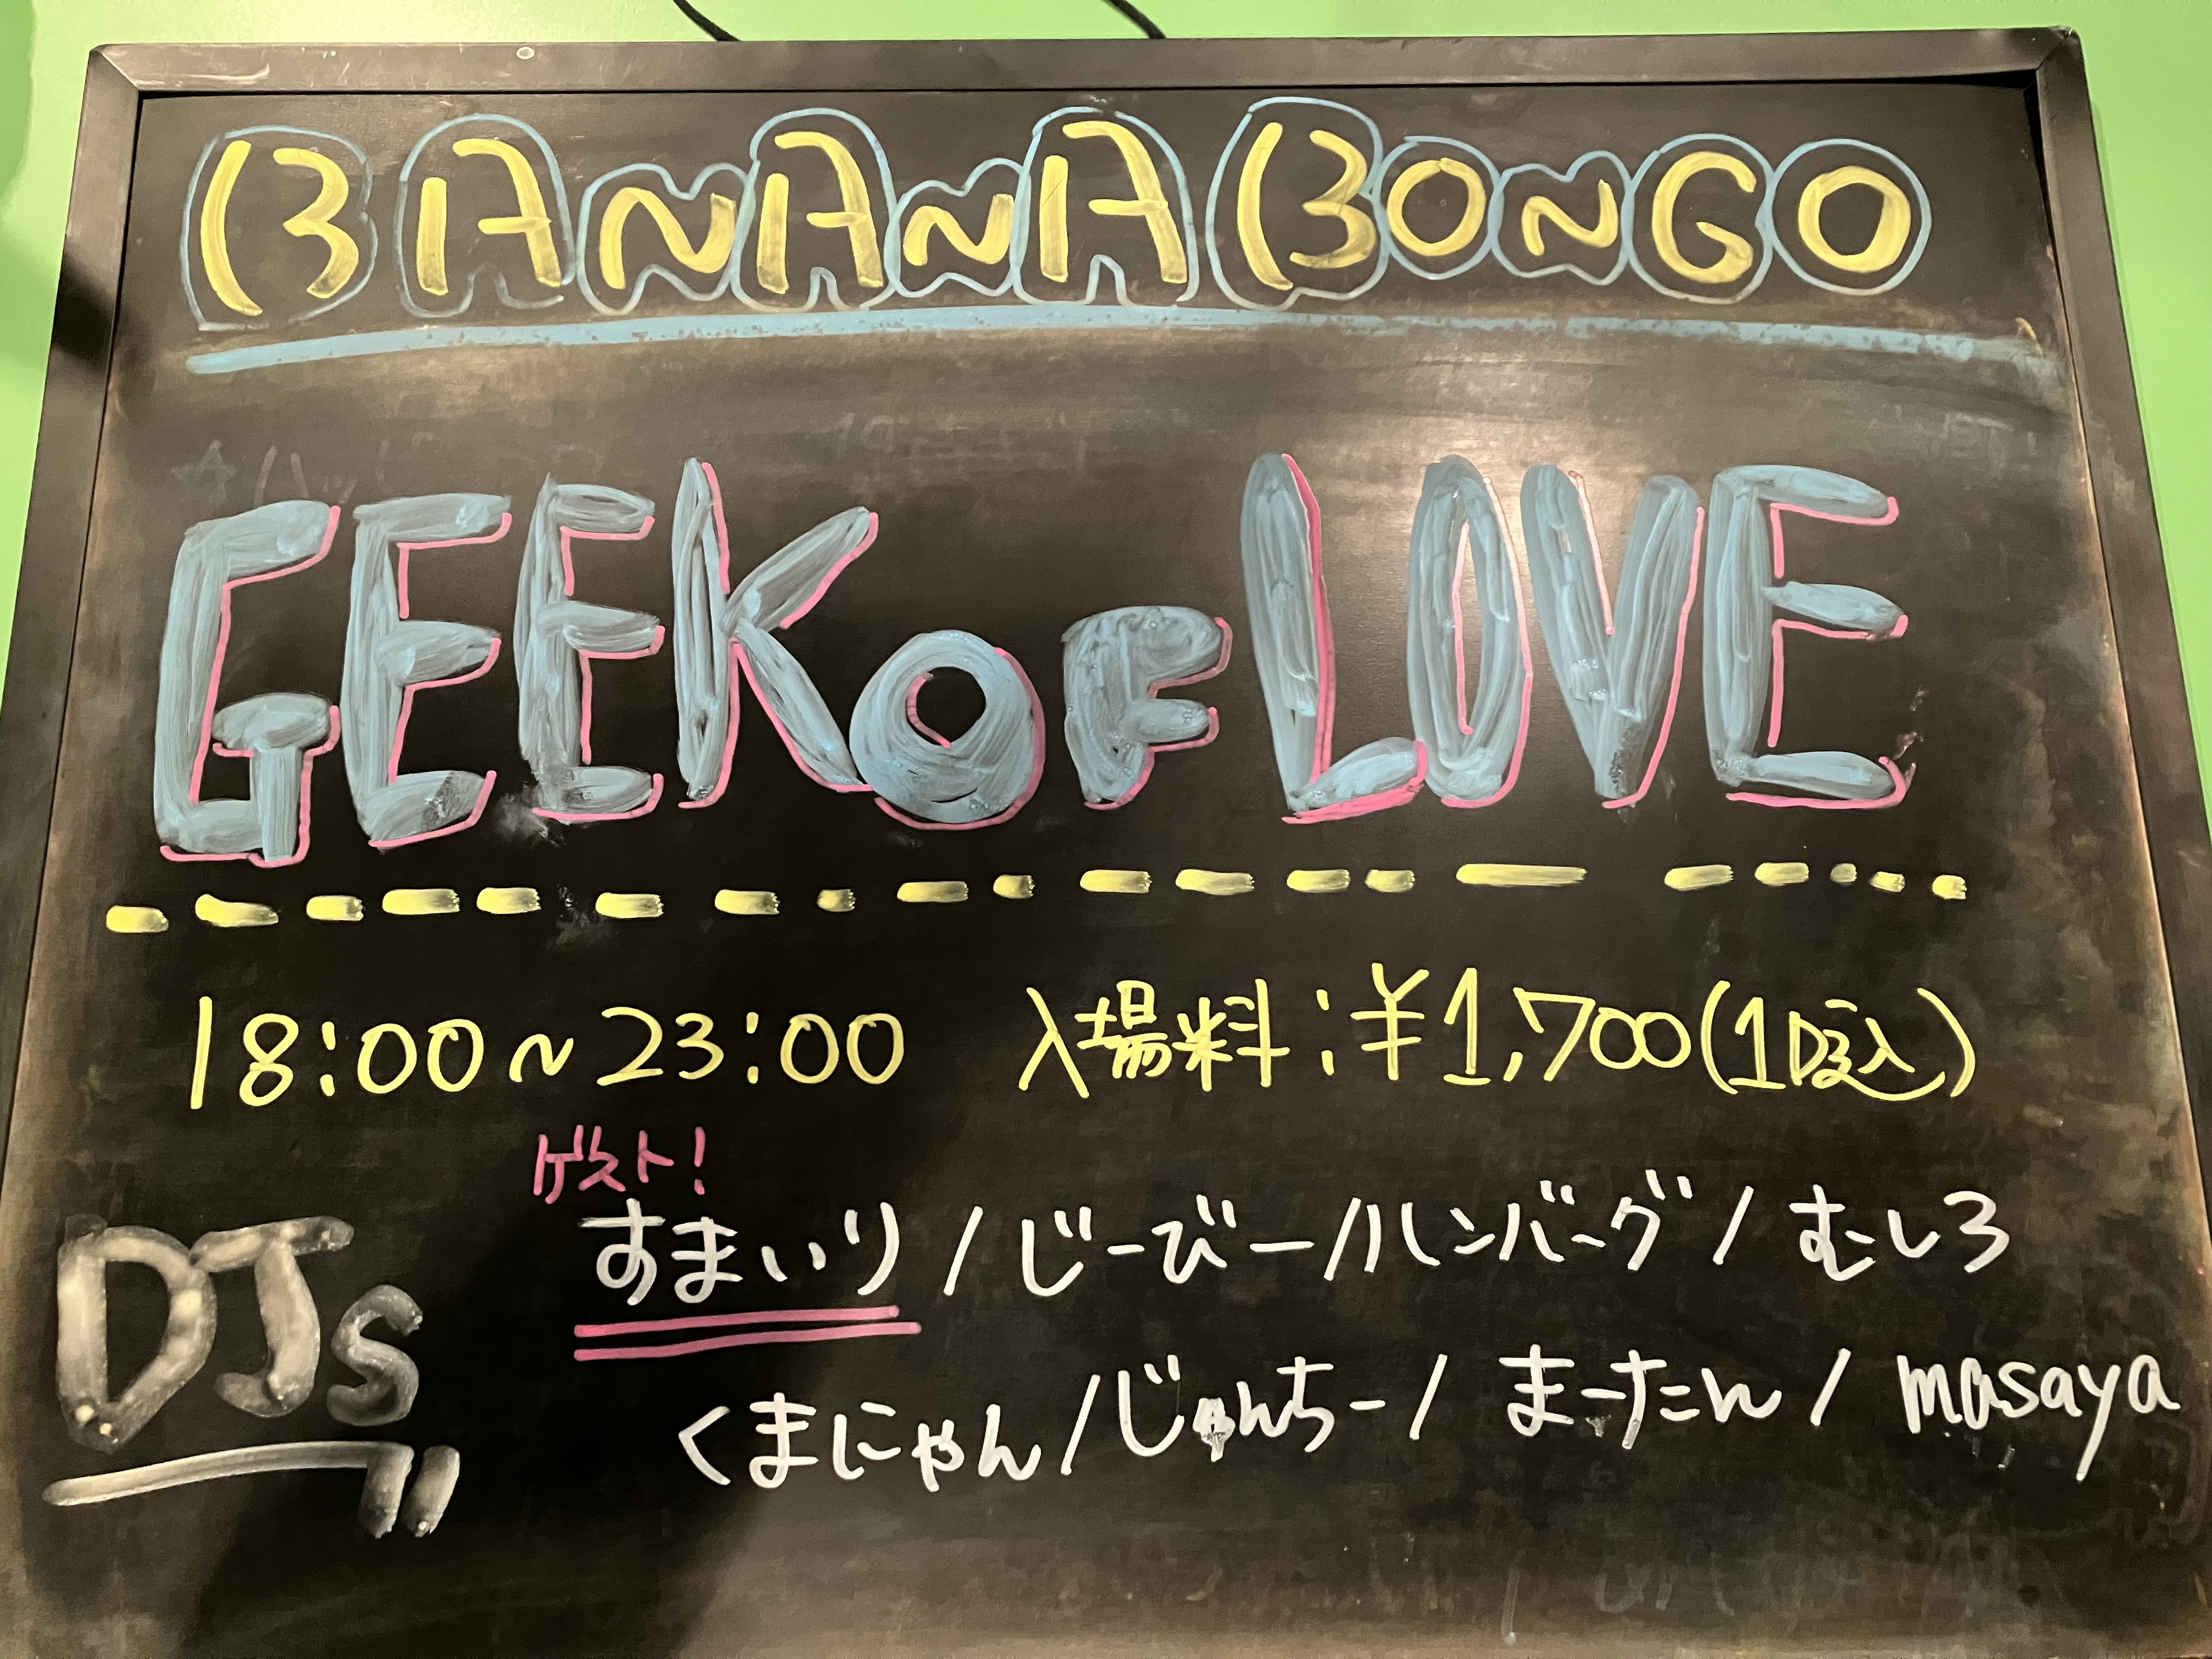 BANANA BONGO
GEEK OF LOVE
18:00~23:00 入場料:¥1,700(1D込)
ゲスト!
DJs
すまいり/じーびー/ハンバーグ/むしろ
くまにゃん/じゅんちー/まーたん/masaya